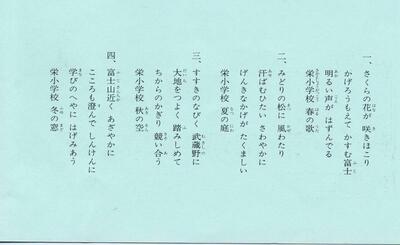 一、さくらの花が 咲きほこり
かげろうもえて かすむ富士
明るい声が はずんでる
栄小学校 春の歌
二、みどりの松に 風わたり
汗ばむひたい さわやかに
げんきなかげが たくましい
栄小学校 夏の庭
三、すすきのなびく 武蔵野に
大地をつよく 踏みしめて
ちからのかぎり 競い合う
栄小学校 秋の空
四、富士山近く あざやかに
こころも澄んで しんけんに
学びのへやに はげみあう
栄小学校 冬の窓